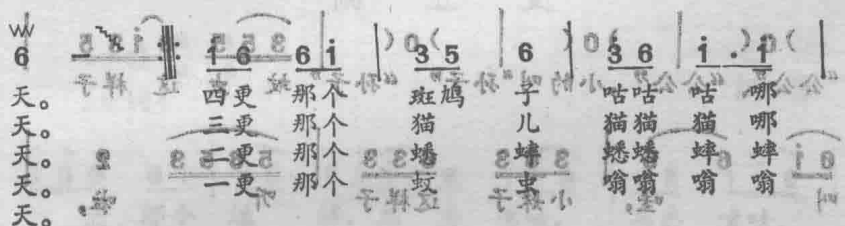 6 i 6 6 i 3 5 6 3 6 i . i
天。 四更 那个 斑鸠 子 咕咕 咕 哪
天。 三更 那个 猫 儿 猫猫 猫 哪
天。 二更 那个 蟋 蟀 蟋蟋 蟀 蟀
天。 一更 那个 蚊 虫 嗡嗡 嗡 嗡
天。